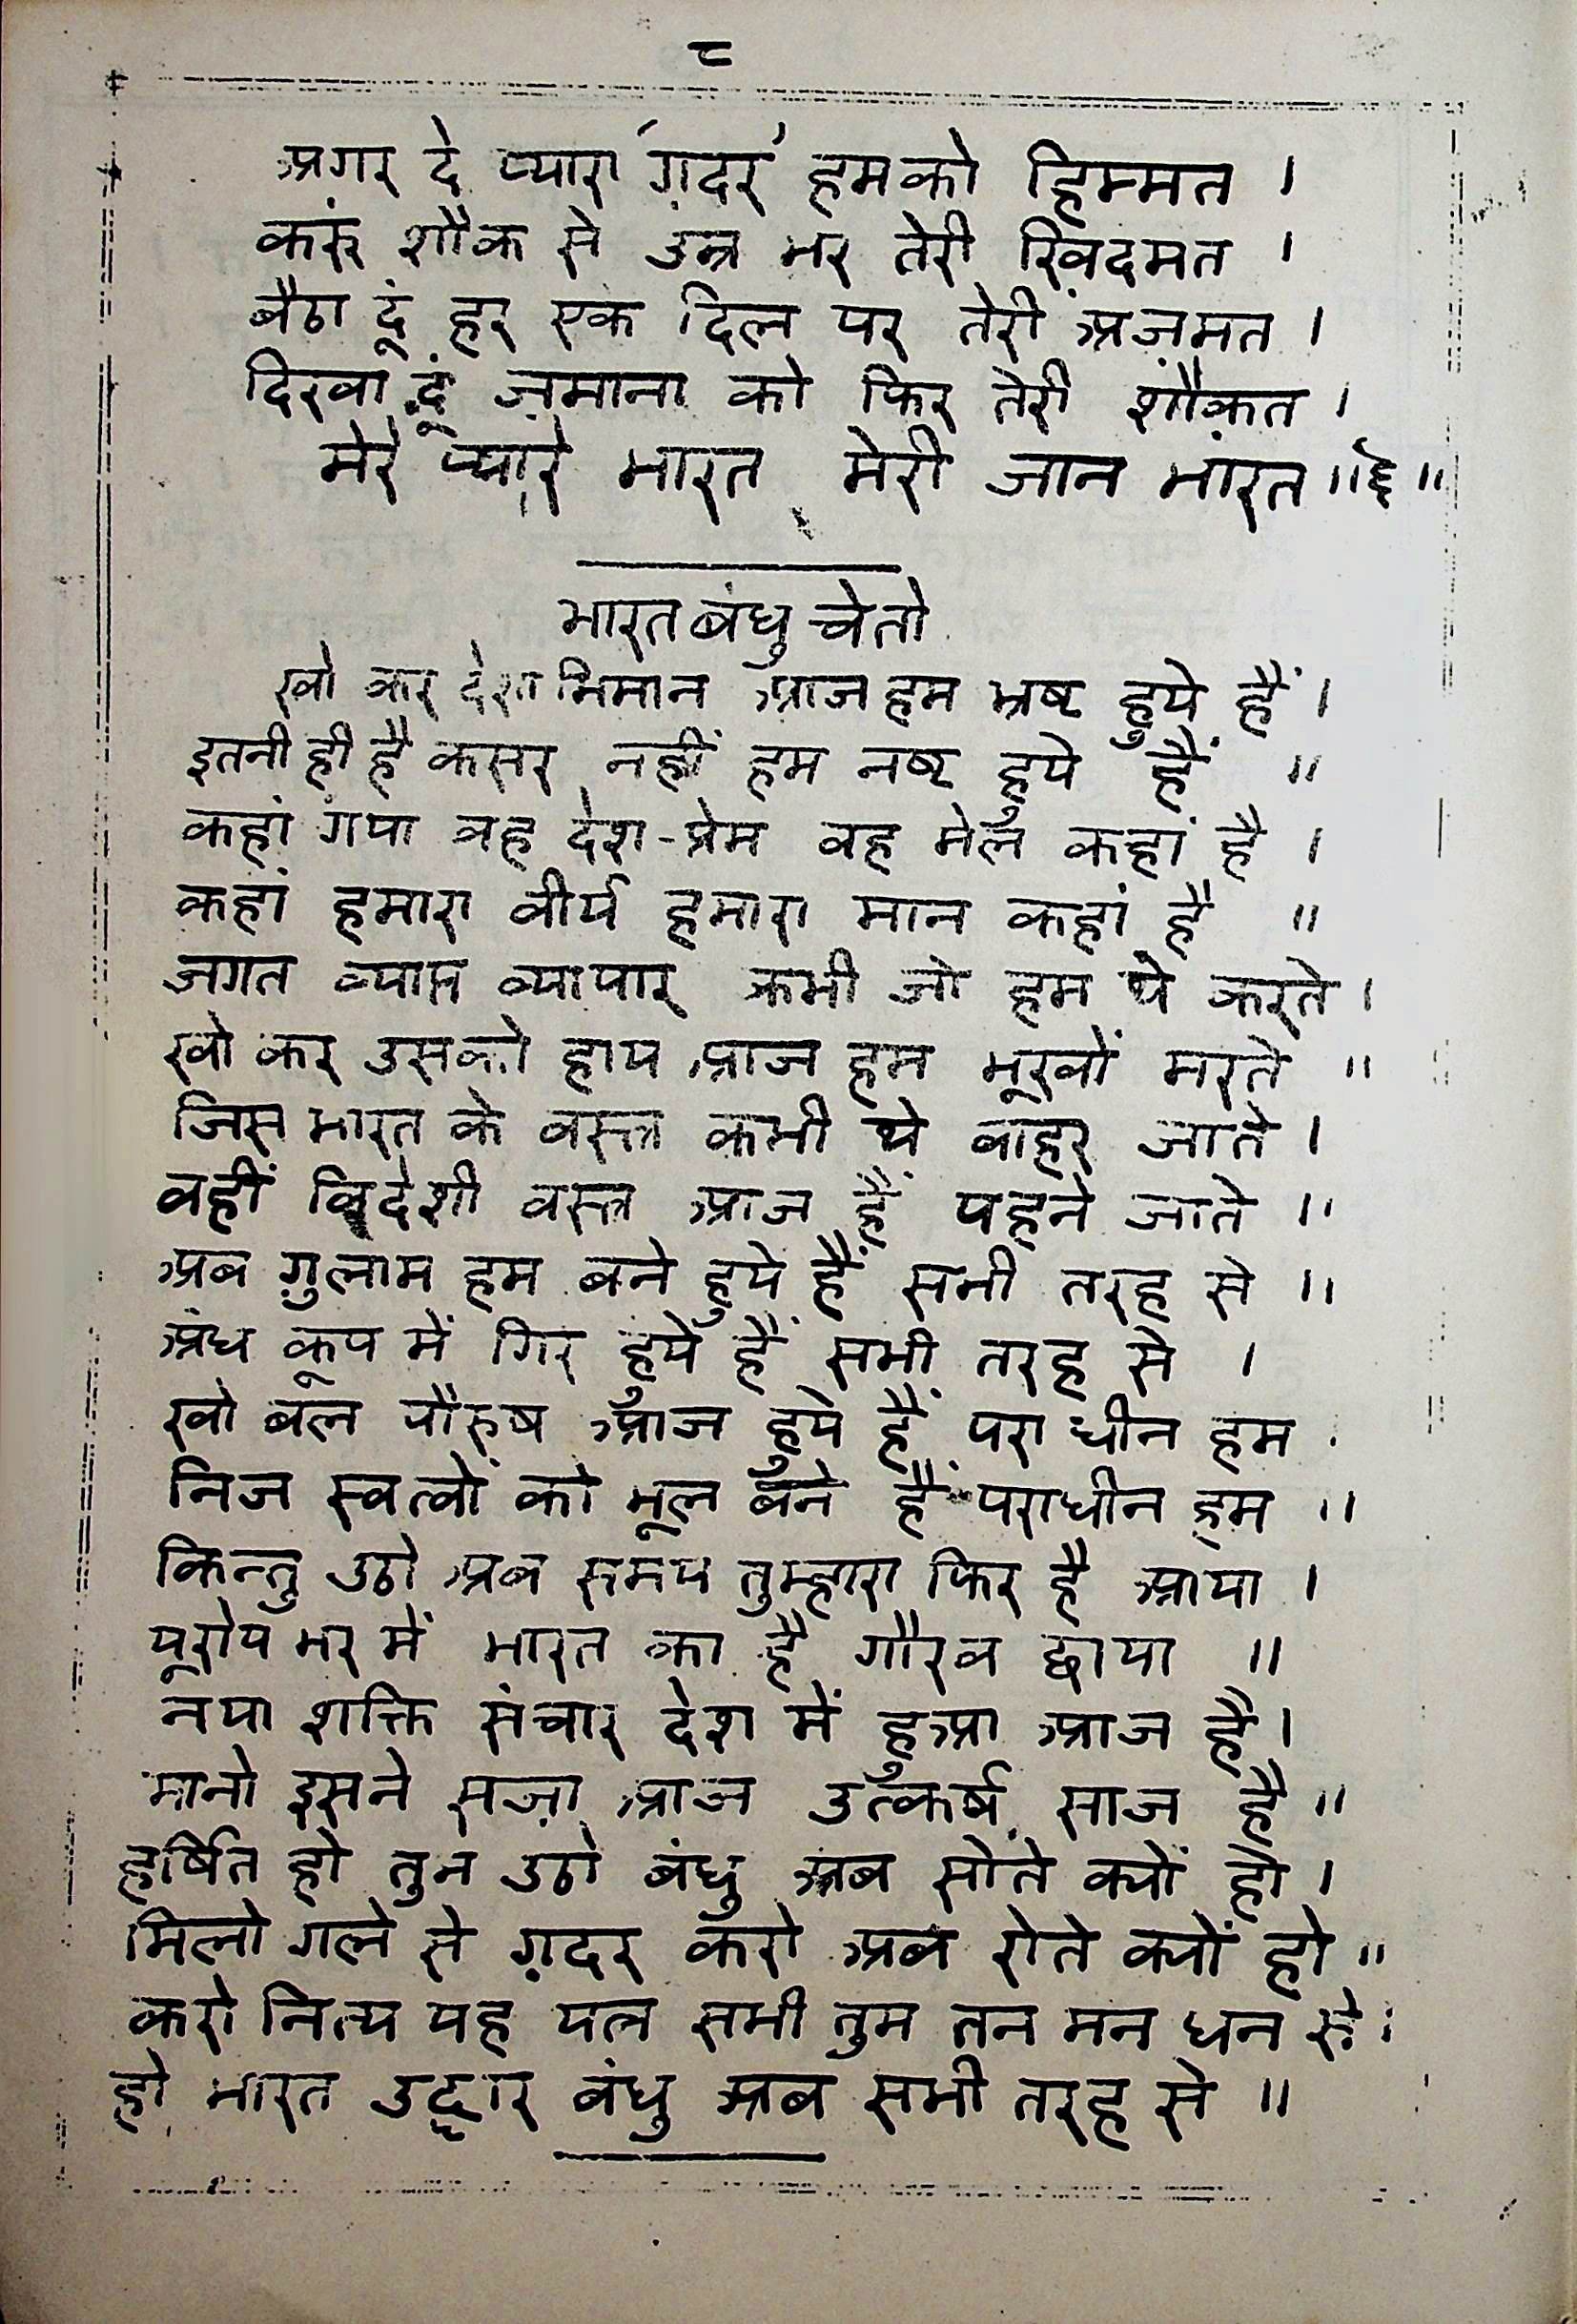 ८
अगर दे प्यारा 'ग़दर' हमको हिम्मत ।
करूं शौक से उम्र भर तेरी ख़िदमत ।
बैठा दूं हर एक दिल पर तेरी अज़मत ।
दिखा दूं ज़माना को फिर तेरी शौकत ।
मेरे प्यारे भारत मेरी जान भारत ॥६॥
भारत बंधु चेतो
खो कर देशाभिमान आज हम भ्रष्ट हुये हैं ।
इतनी ही है कसर नहीं हम नष्ट हुये हैं ॥
कहां गया वह देश-प्रेम वह मेल कहां है ।
कहां हमारा वीर्य हमारा मान कहां है ॥
जगत व्याप्त व्यापार कभी जो हम थे करते ।
खो कर उसको हाय आज हम भूखों मरते ॥
जिस भारत के वस्त्र कभी थे बाहर जाते ।
वहीं विदेशी वस्त्र आज हैं पहने जाते ॥
अब ग़ुलाम हम बने हुये हैं सभी तरह से ॥
अंध कूप में गिर हुये हैं सभी तरह से ।
खो बल पौरुष आज हुये हैं पराधीन हम ।
निज स्वत्वों को भूल बने हैं पराधीन हम ॥
किन्तु उठो अब समय तुम्हारा फिर है आया ।
यूरोप भर में भारत का है गौरव छाया ॥
नया शक्ति संचार देश में हुआ आज है ।
मानो इसने सजा आज उत्कर्ष साज है ॥
हर्षित हो तुम उठो बंधु अब सोते क्यों हो ।
मिलो गले से ग़दर करो अब रोते क्यों हो ॥
करो नित्य यह यत्न सभी तुम तन मन धन से ।
हो भारत उद्धार बंधु अब सभी तरह से ॥